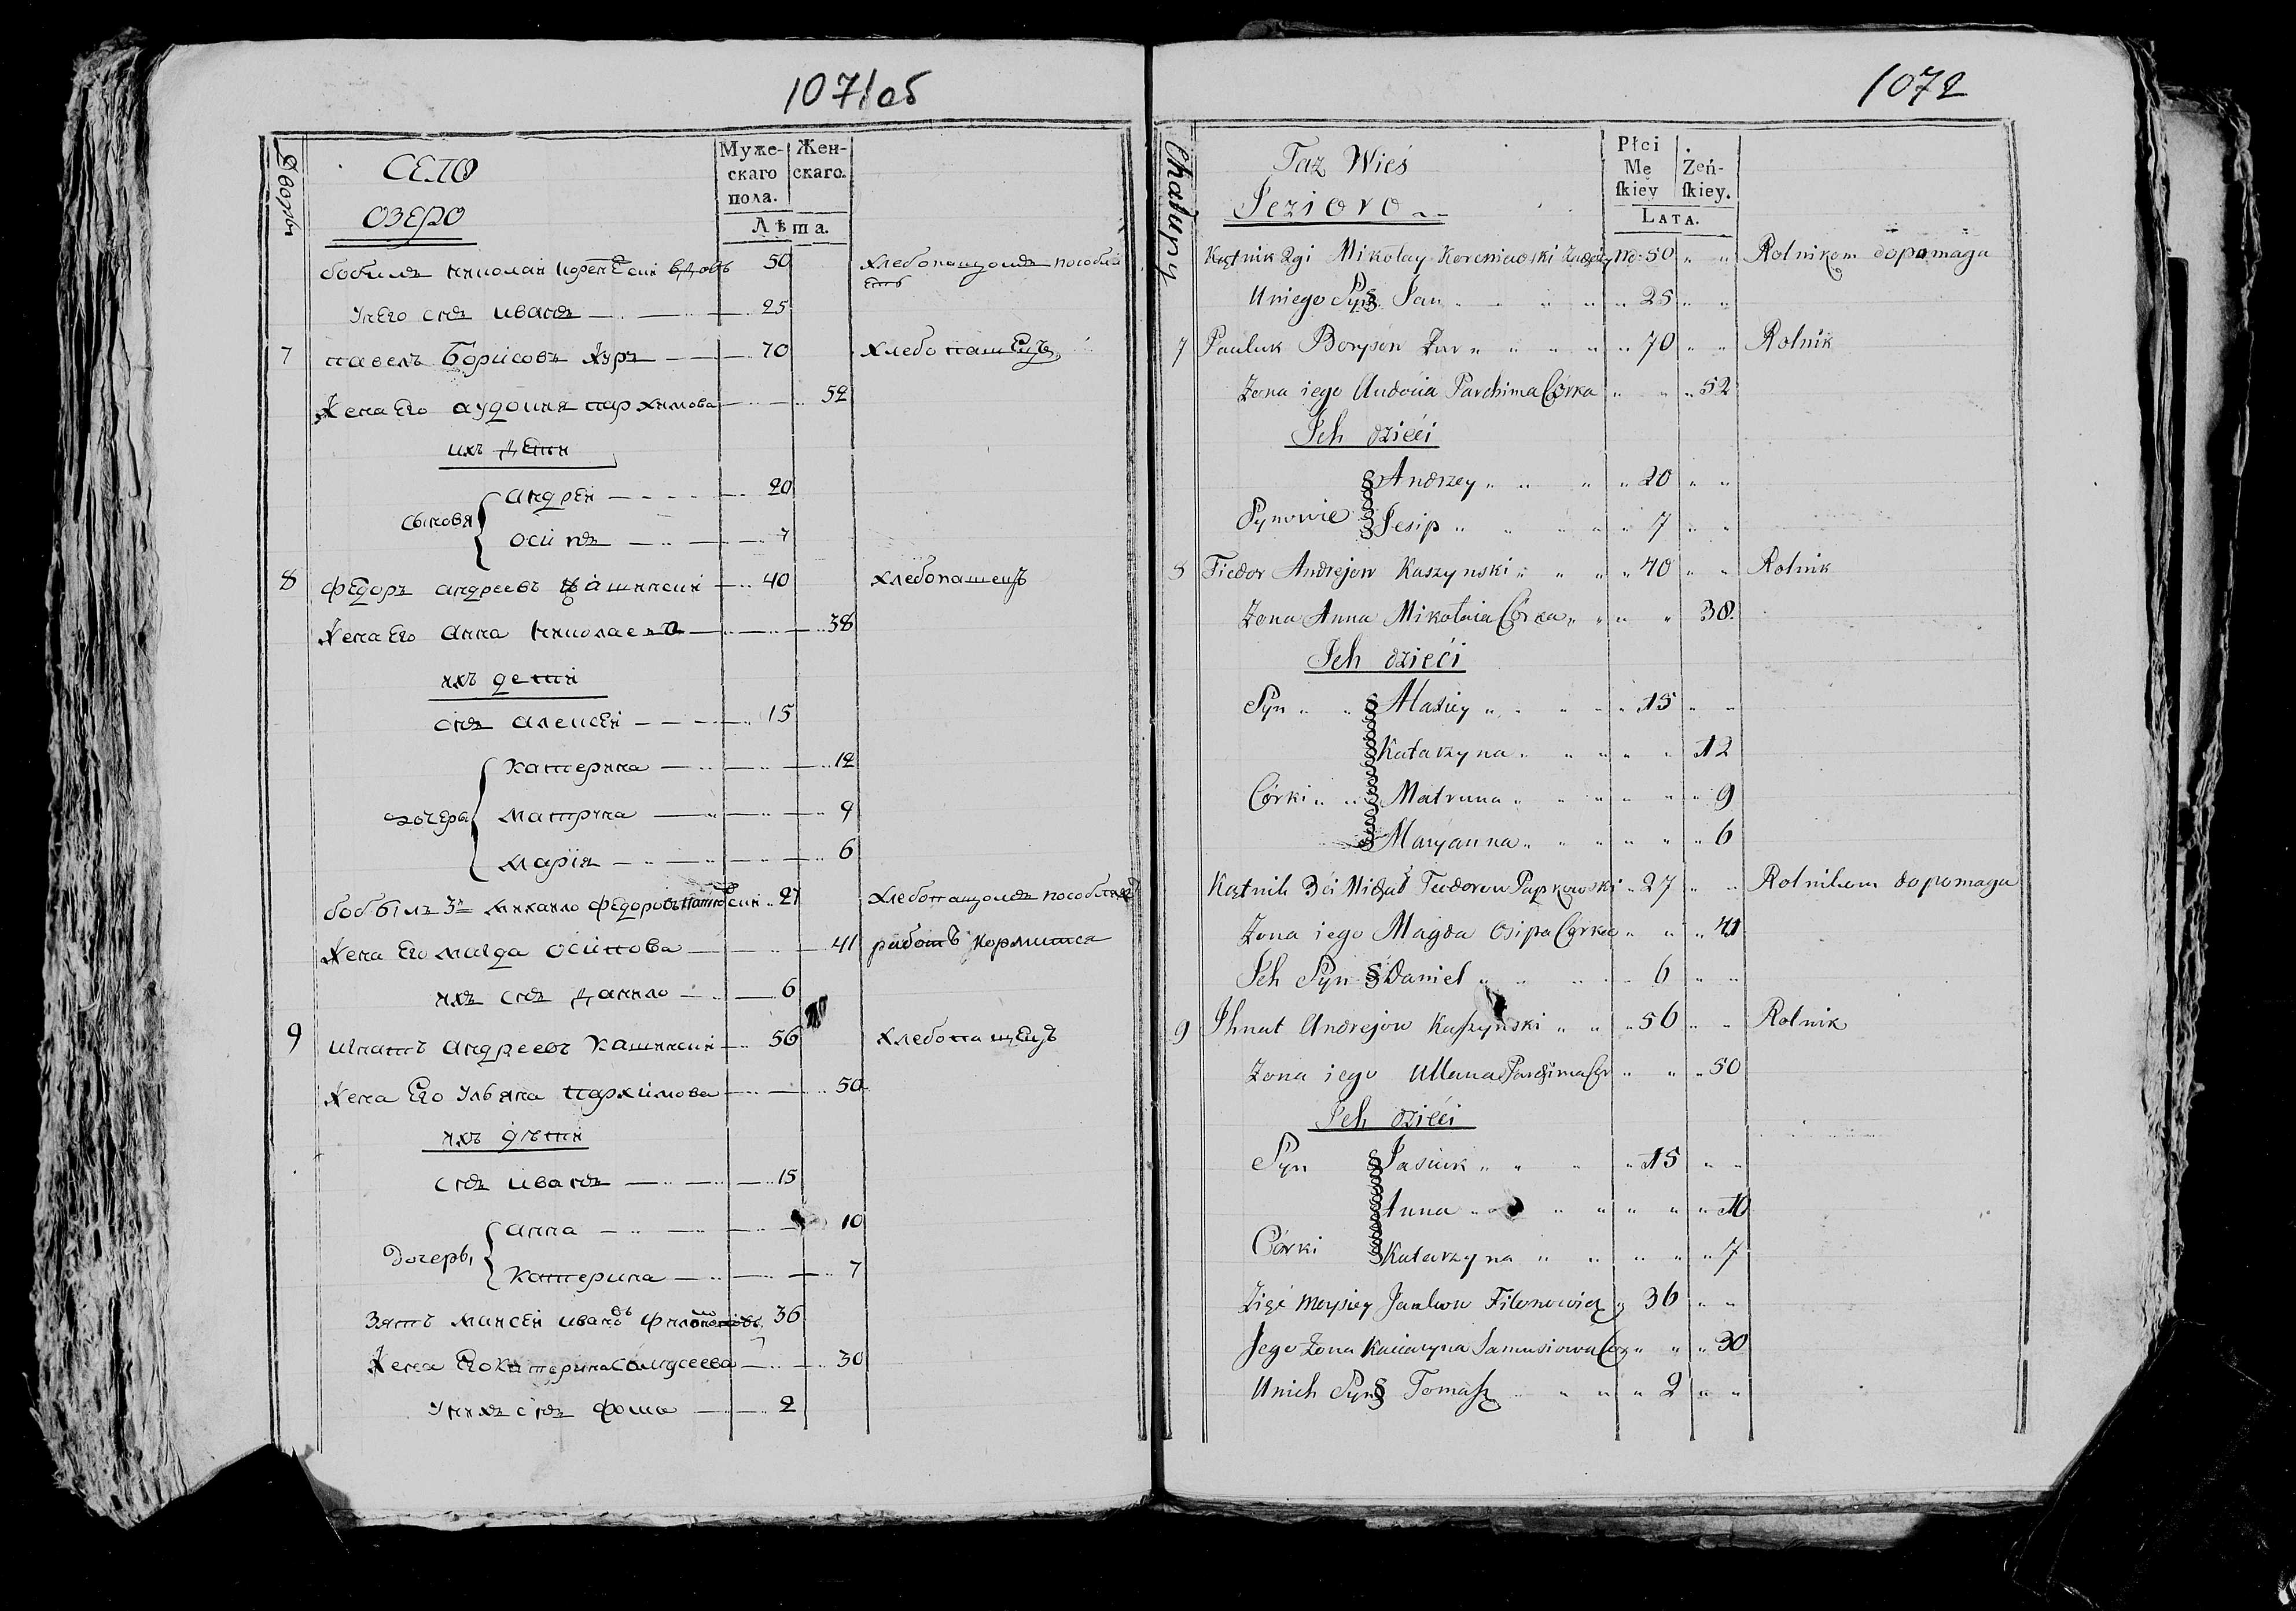 1071об
Дворы
СЕЛО
ОЗЕРО
Муже-
скаго
пола.
Жен-
скаго.
Лѣта.
бобыль николай вдовъ 50 хлебопашцомъ пособля
етъ
унего снъ иванъ 25
7 павелъ Борисовъ журъ 70 хлебопашецъ
жена его аудоция пархимова 52
ихъ дети
сыновя андрей 20
осипъ 7
8 федоръ андреевъ кашински 40 хлебопашецъ
жена его анна николаева 38
ихъ дети
снъ алексей 15
катерина 12
дочери матрина 9
марїя 6
бобылъ 3й михайло федоровъ 27 хлебопашцомъ пособляя
жена его магда осипова 41 работъ кормится
ихъ снъ данило 6
9 игнатъ андреевъ кашински 56 хлебопащецъ
жена его ульяна пархимова 50
ихъ дѣти
снъ иванъ 15
анна 10
дочеры
катерина 7
зятъ мийсей ивановъ 36
жена его катерина 30
унихъ снъ фома 2
1072
Chałupy
Taż Wieś
Jezioro
Płci
Mę
ſkiey
Żeń-
ſkiey.
Lata.
Kątnik 2gi Mikołay Koreniewski 50 Rolnikom dopomaga
Uniego Syn Jan 25
7 Pauluk Borysow Żur 70 Rolnik
Żona iego Audocia Parchima Córka 52
Ich dzieci
Andrzey 20
Synowie Jesip 7
8 Fiedor Andrejow Kaszynski 40 Rolnik
Żona Anna Mikołaia Córka 38
Ich dzieci
Syn Alaxiey 15
Katarzyna 12
Córki Matruna 9
Maryanna 6
Kątnik 3ci Michał Teodorow Papkowski 27 Rolnikom dopomaga
Żona iego Magda Osipa Córka 41
Ich Syn Daniel 6
9 Ihnat Andrejow Kaſzynski 56 Rolnik
Żona iego Ullana Parchima Cor 50
Ich dzieci
Syn Jasiuk 15
Anna 10
Córki
Katarzyna 7
Zięć Moysiey Filonowicz 36
Jego Żona Kaciaryna Samusiowa 30
Unich Syn Tomaſz 2